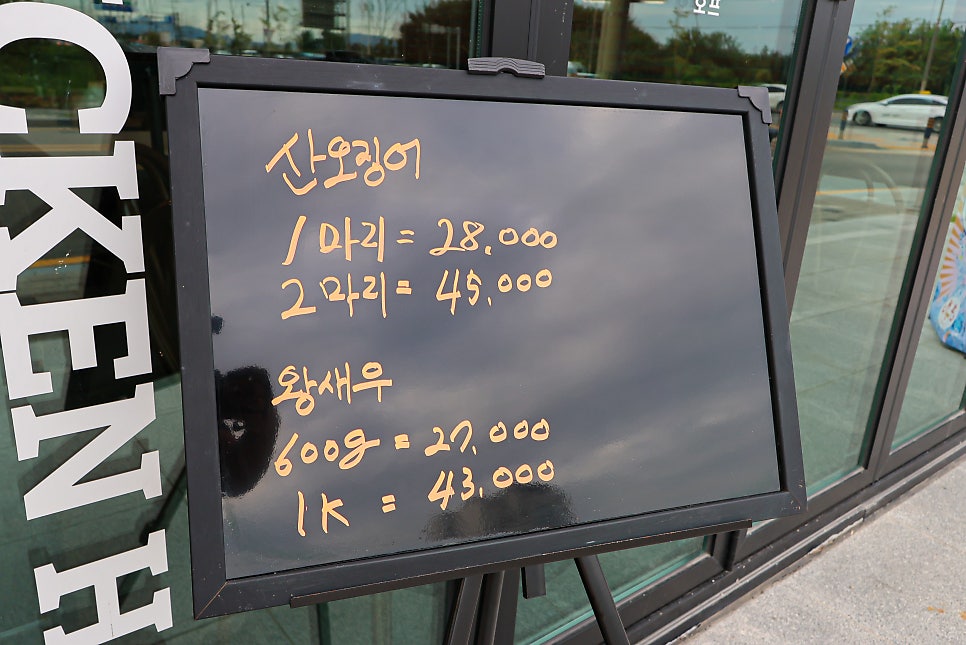 산오징어
1마리 = 28,000
2마리 = 45,000
왕새우
600g = 27,000
1K = 43,000
CKEN H